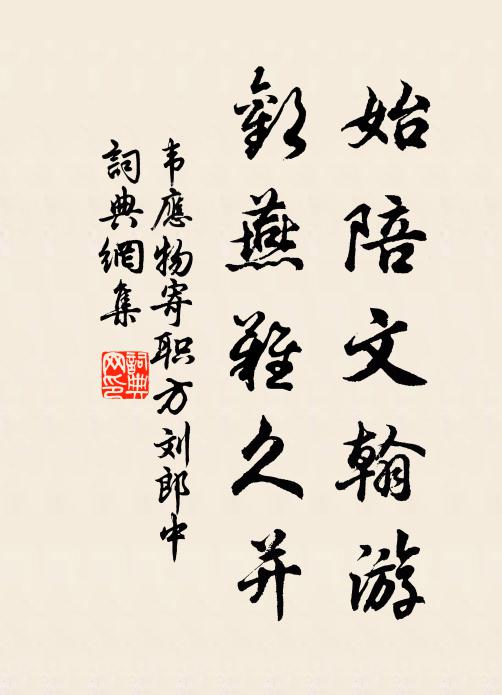 始陪文翰游
歡燕難久并
韦應物寄职方刘郎中
詞典網集
詞典网印